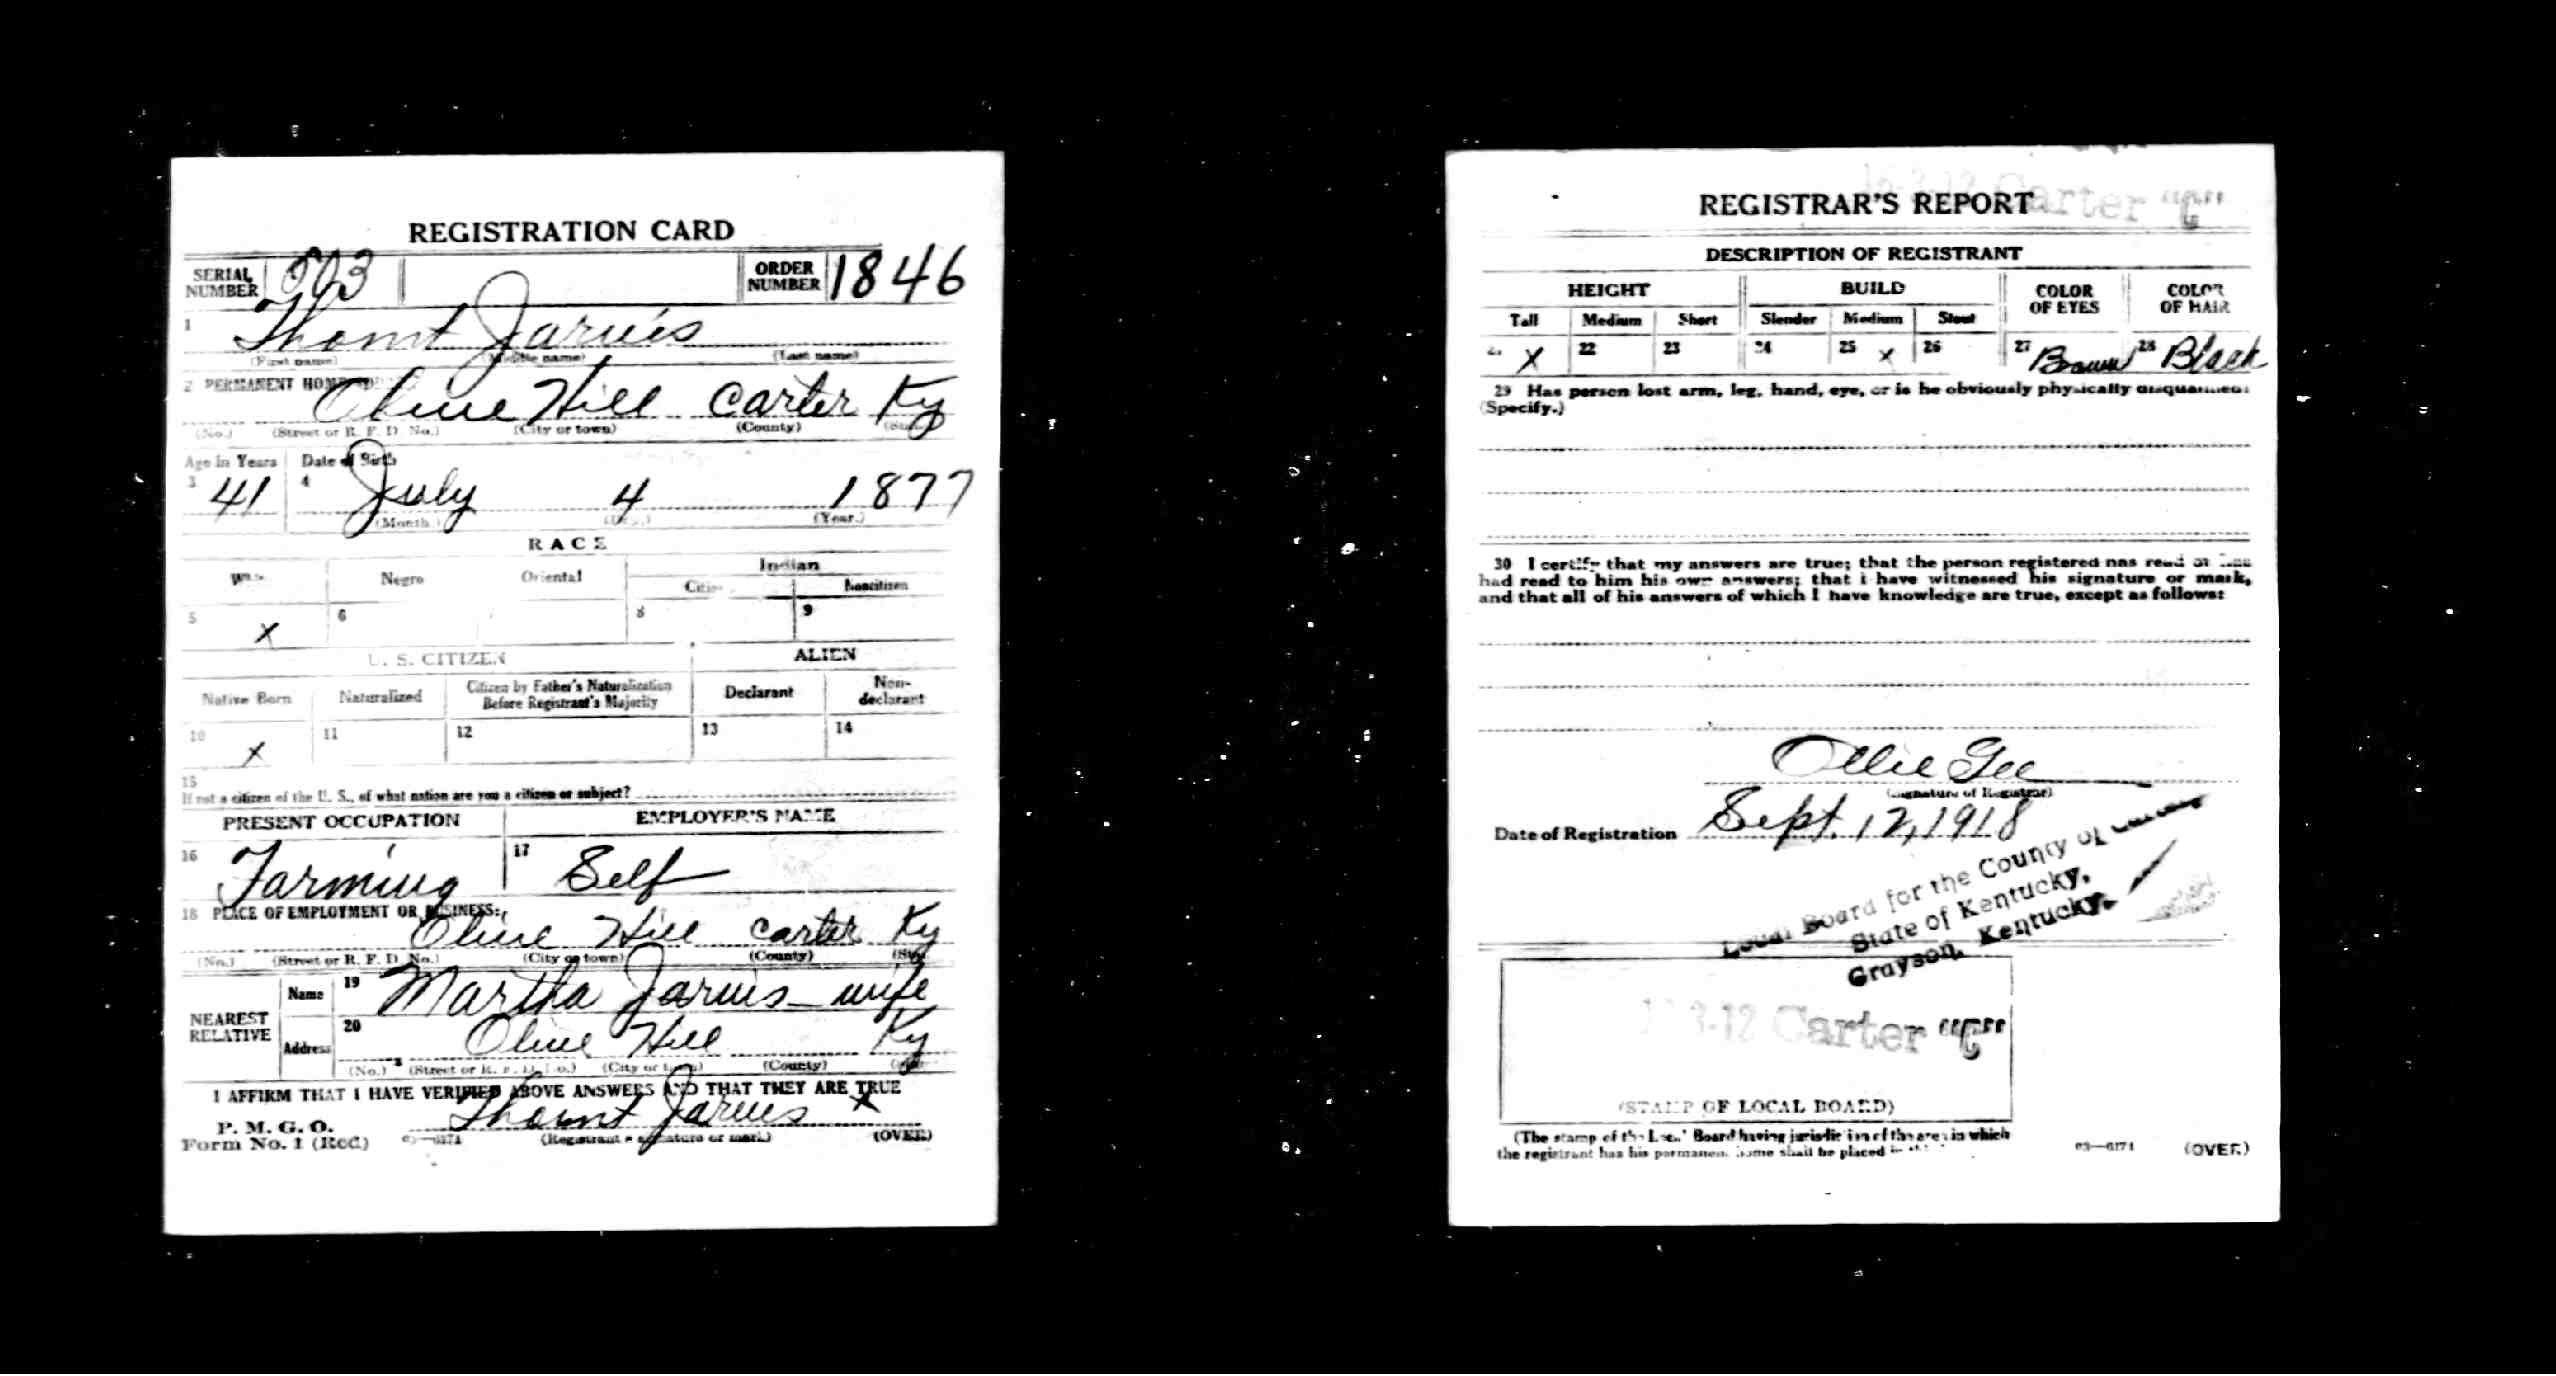 REGISTRATION CARD
SERIAL NUMBER 903 ORDER NUMBER 1846
1 Thomt Jarvis
(First name) (Middle name) (Last name)
2 PERMANENT HOME
Olive Hill Carter Ky
(No.) (Street or R. F. D. No.) (City or town) (County)
Age in Years Date of Birth
3 41 4 July 4 1877
(Month.) (Year.)
RACE
White Negro Oriental Indian
Citizen Noncitizen
5 X 6 8 9
U. S. CITIZEN ALIEN
Native Born Naturalized Citizen by Father's Naturalization Before Registrant's Majority Declarant Non-declarant
10 X 11 12 13 14
15
If not a citizen of the U. S., of what nation are you a citizen or subject?
PRESENT OCCUPATION EMPLOYER'S NAME
16 Farming 17 Self
18 PLACE OF EMPLOYMENT OR BUSINESS:
Olive Hill Carter Ky
(No.) (Street or R. F. D. No.) (City or town) (County)
NEAREST RELATIVE Name 19 Martha Jarvis – wife
Address 20 Olive Hill Ky
(No.) (Street or R. F. D. No.) (City or town) (County)
I AFFIRM THAT I HAVE VERIFIED ABOVE ANSWERS AND THAT THEY ARE TRUE
P. M. G. O.
Form No. 1 (Red) Thomt Jarvis X
(Registrant's signature or mark) (OVER)
Carter "C"
REGISTRAR'S REPORT
DESCRIPTION OF REGISTRANT
HEIGHT BUILD COLOR OF EYES COLOR OF HAIR
Tall Medium Short Slender Medium Stout
X 22 23 24 25 X 26 27 Brown 28 Black
29 Has person lost arm, leg, hand, eye, or is he obviously physically disqualified?
(Specify.)
30 I certify that my answers are true; that the person registered has read or has
had read to him his own answers; that I have witnessed his signature or mark,
and that all of his answers of which I have knowledge are true, except as follows:
Ollie Gee
(Signature of Registrar)
Date of Registration Sept. 12, 1918
Local Board for the County of Carter
State of Kentucky,
Grayson, Kentucky.
3-12 Carter "C"
(STAMP OF LOCAL BOARD)
(The stamp of the Local Board having jurisdiction of the area in which
the registrant has his permanent home shall be placed in
03—6171 (OVER)